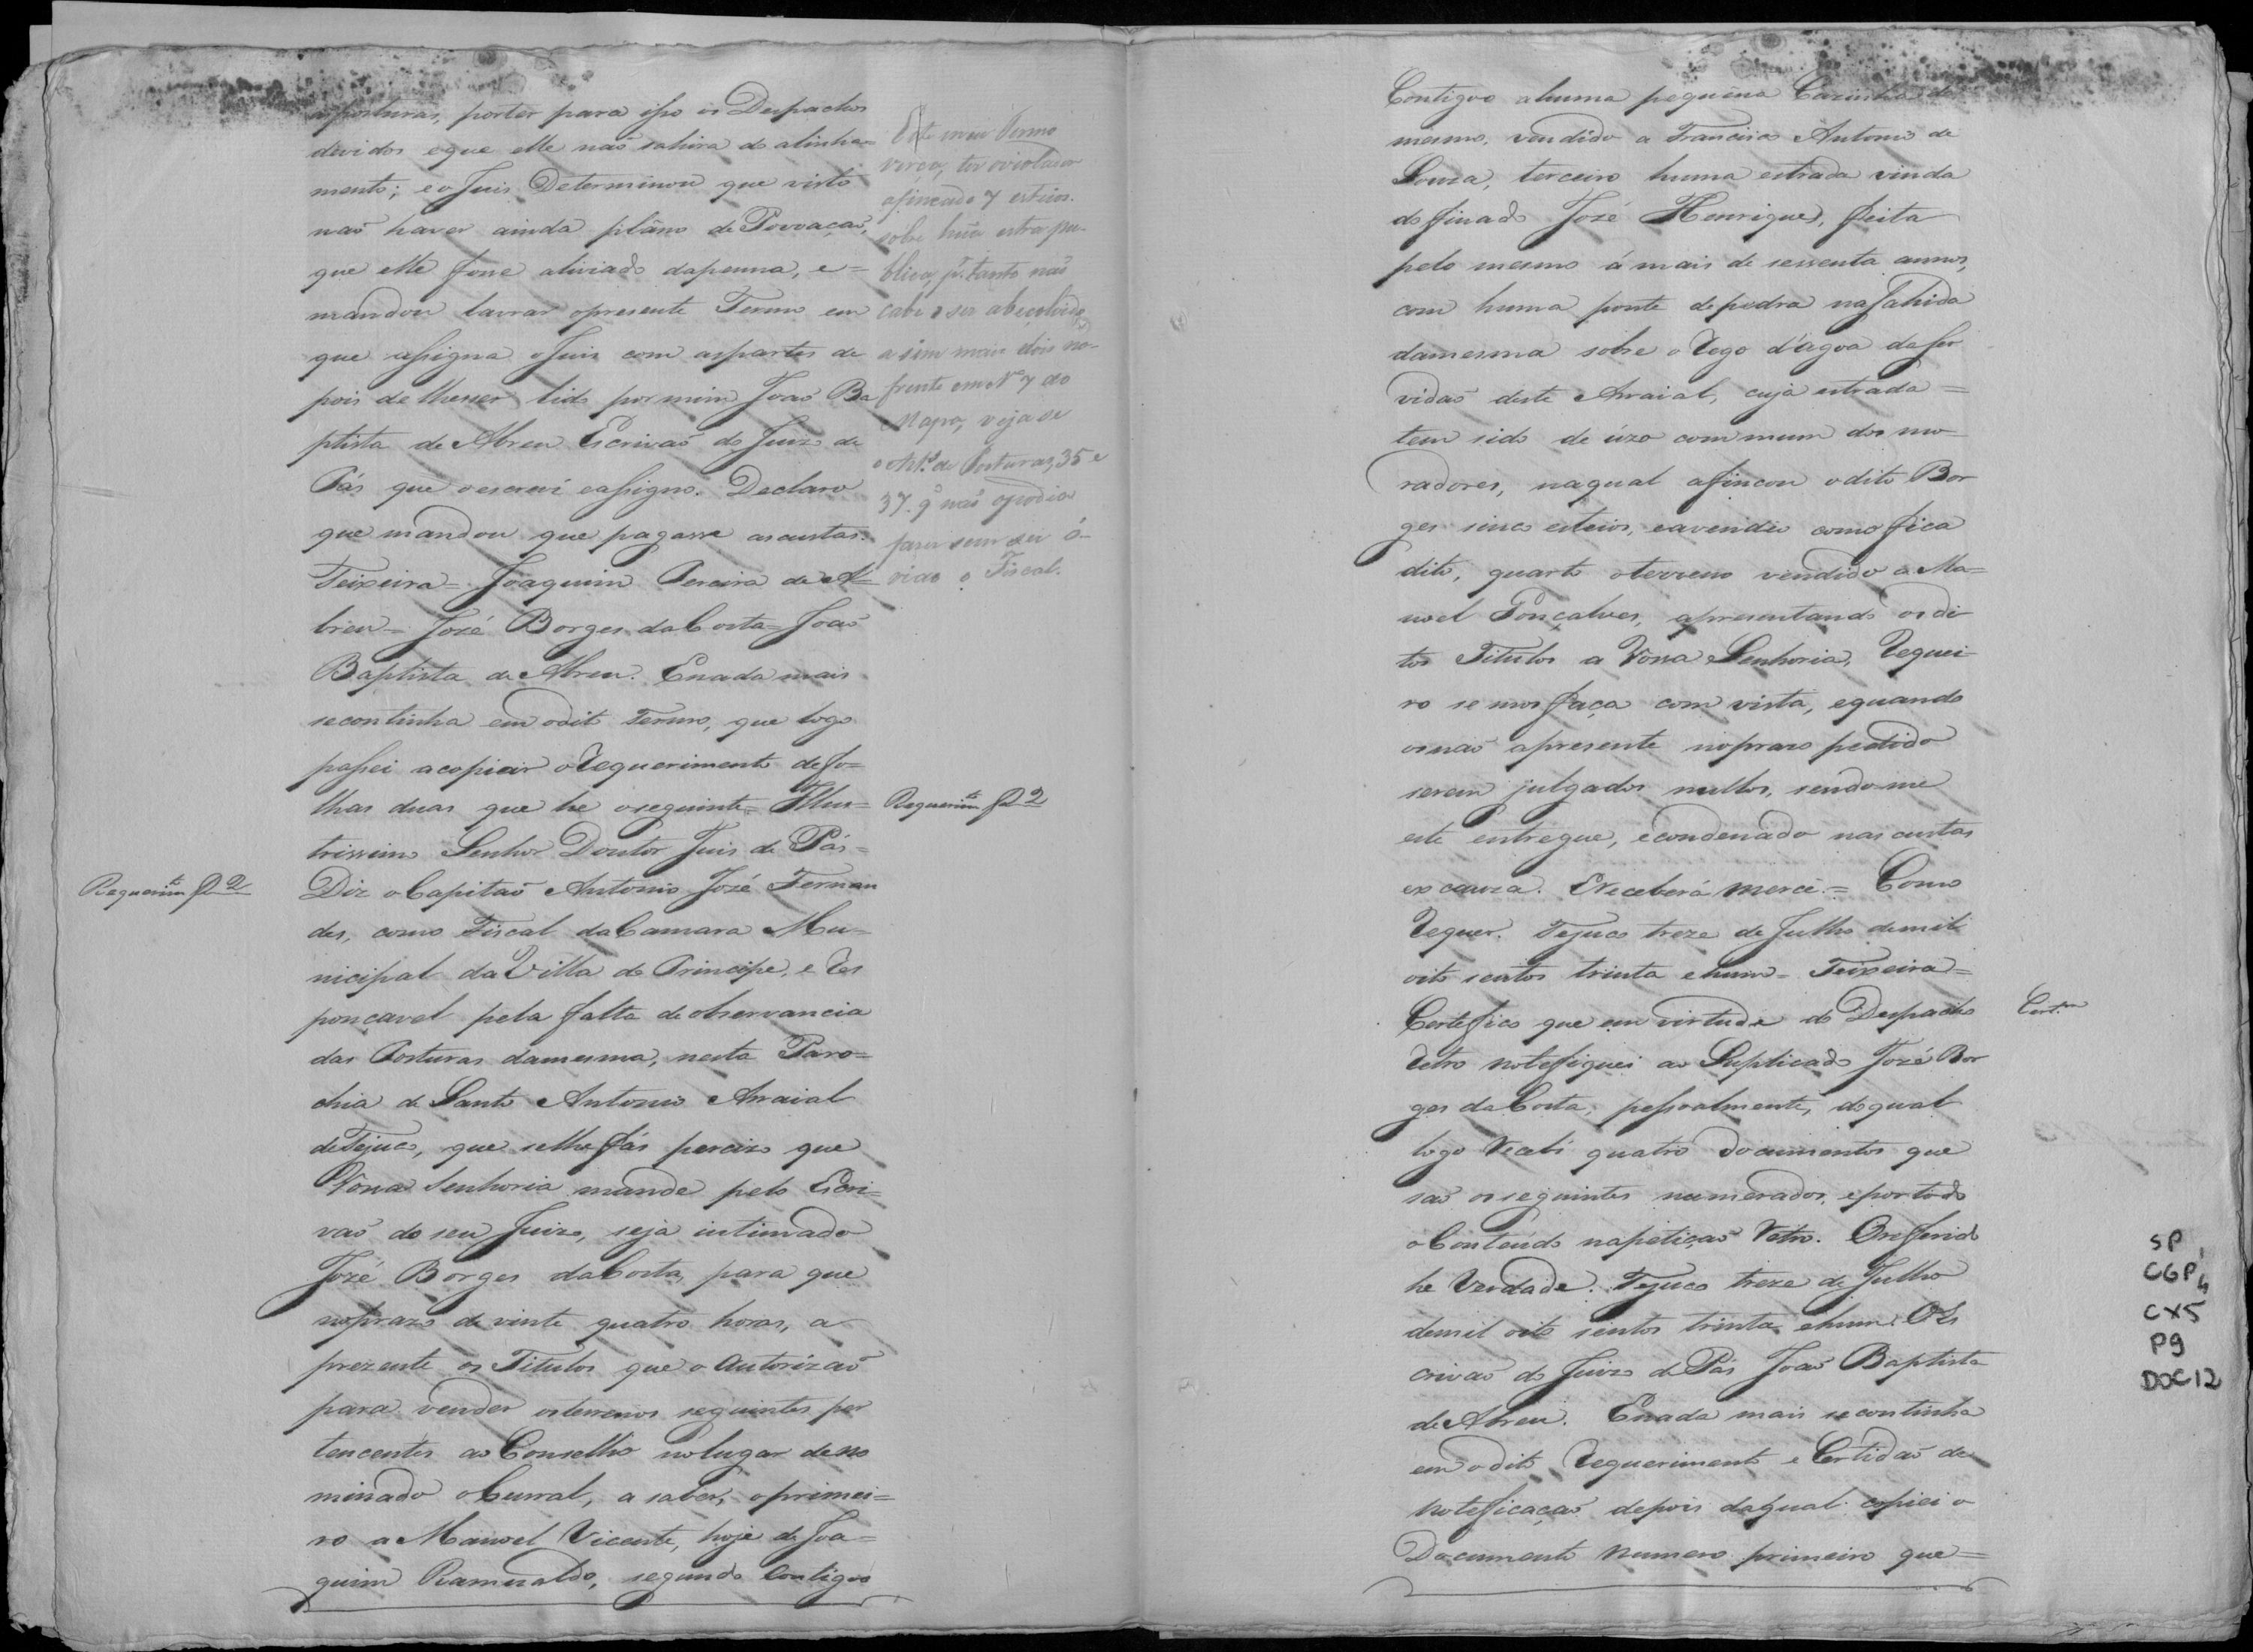 as posturas, porter para isso os Despachos
devidos eque elle naõ sahira do alinha=
mento; e o Juis Determinou que visto
naõ haver ainda plâno de Povoaçaõ,
que elle fosse aliviado dapenna, e=
mandou lavrar opresente Termo em
que assigna oJuiz com aspartes de
pois delhesser lido pormim Joaõ Ba
ptista de Abreu Escrivaõ do Juizo de
Pás que oescreví eassigno. Declaro
que mandou que pagasse ascustas.
Teixeira= Joaquim Pereira de A=
breu= Jozé Borges daCosta= Joaõ
Baptista de Abreu. Enada mais
secontinha em odit Termo, que logo
passei acopiar oRequerimento defo=
lhas duas que he oseguinte= Illus=
trissimo Senhor Doutor Juis de Pás=
Diz oCapitaõ Antonio Jozé Fernan
des, como Fiscal daCamara Mu=
nicipal da Villa do Principe, e Res
ponçavel pela falta de observancia
das Posturas damesma, nesta Paro=
chia de Santo Antonio Arraial
deTejuco, que selhe fás percizo que
Vossa Senhoria mande pelo Escri=
vaõ do seu Juizo, seja intimado
Jozé Borges daCosta, para que
noprazo de vinte quatro horas, a
prezente os Titulos que o Autorizaõ
para vender osterrenos seguintes per
tencentes ao Conselho nolugar deno
minado oCurral, a saber, oprimei=
ro a Manoel Vicente, hoje de Joa=
quim Ramualdo, segundo Contiguo
Este meu Termo
verça, ter oviolador
afincado 7 esteios.
sobre huã estra pu-
blica, p.r tanto naõ
cabe o ser absolvido,
asim mais dois no-
frente em Nº 7 do
Mapa, veja se
o Art.º de Posturas 35 e
37. q̃ naõ opodia
fazer sem ser ô-
vido o Fiscal.
Requerim.to f 2
Requerim.to f 2
Contiguo ahuma pequena Cazinha do
mesmo, vendido a Francisco Antonio de
Souza, terceiro huma estrada vinda
do finado Jozé Henriques, feita
pelo mesmo á mais de sessenta annos,
com huma ponte depedra nasahida
damesma sobre o Rego d'agoa daser
vidaõ deste Arraial, cuja estrada=
tem sido de úzo commum dos mo=
radores, naqual afincou odito Bor
ges sinco esteios, eavendeu como fica
dito, quarto oterreno vendido a Ma=
noel Gonçalves, apresentando osdi
tos Titulos a Vossa Senhoria, Requei=
ro se mos faça com vista, equando
osnaõ apresente noprazo pedido
serem julgados nullos, sendo-me
este entregue, econdenado nas custas
ex cauza. EReceberá mercê.= Como
Requer. Tejuco treze de Julho demil
oito centos trinta ehum= Teixeira=
Certefico que em virtude do Despacho
Retro notefiquei ao Suplicado Jozé Bor
ges daCosta, pessoalmente, doqual
logo Recebi quatro documentos que
saõ osseguintes numerados, eportodo
oConteúdo napetiçaõ Retro. Oreferido
he Verdade. Tejuco treze de Julho
demil oito sentos trinta ehum. OEs
crivaõ do Juizo de Pás Joaõ Baptista
de Abreu. Enada mais secontinha
em odito Requerimento e Certidaõ de
notificaçaõ depois daqual copiei o
Documento numero primeiro que=
Cert.am
SP
CGP1
CX5
P9
DOC12